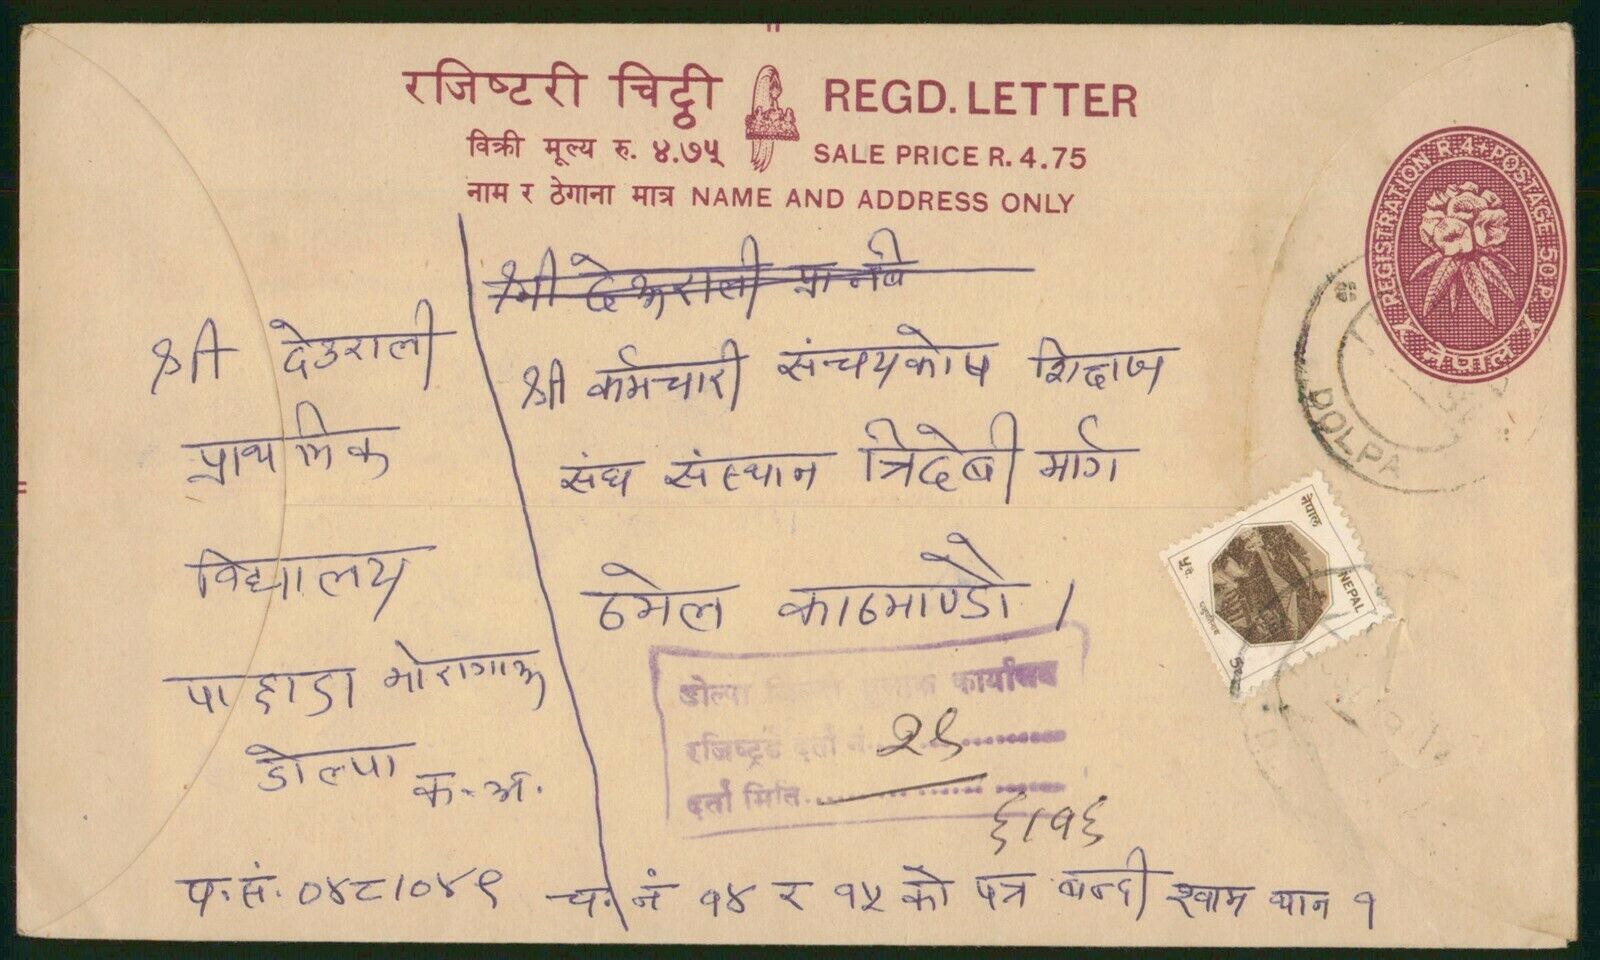 रजिष्टरी चिट्ठी REGD. LETTER
विक्री मूल्य रु. ४.७५ SALE PRICE R. 4.75
नाम र ठेगाना मात्र NAME AND ADDRESS ONLY
REGISTRATION R 4 POSTAGE 50 P.
नेपाल
श्री देउराली
श्री देउराली
प्राथमिक
विद्यालय
पाहाडा मोरागाउ
डोल्पा
क.अ.
श्री कर्मचारी संन्चयकोष
संघ संस्थान त्रिदेबी मार्ग
ठमेल काठमाण्डौ ।
DOLPA
नेपाल
NEPAL
50
डोल्पा जिल्ला हुलाक कार्यालय
रजिष्ट्रर्ड दर्ता नं. २९
दर्ता मिति
६।१६
प.सं. ०४८।०४९ च. नं १४ र १५ को पत्र बन्दी श्वाम थान १